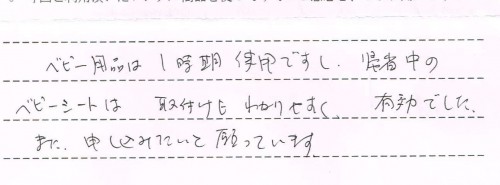 ベビー用品は1時期使用ですし、帰省中の
ベビーシートは 取付けもわかりやすく、有効でした、
また、申し込みたいと願っています